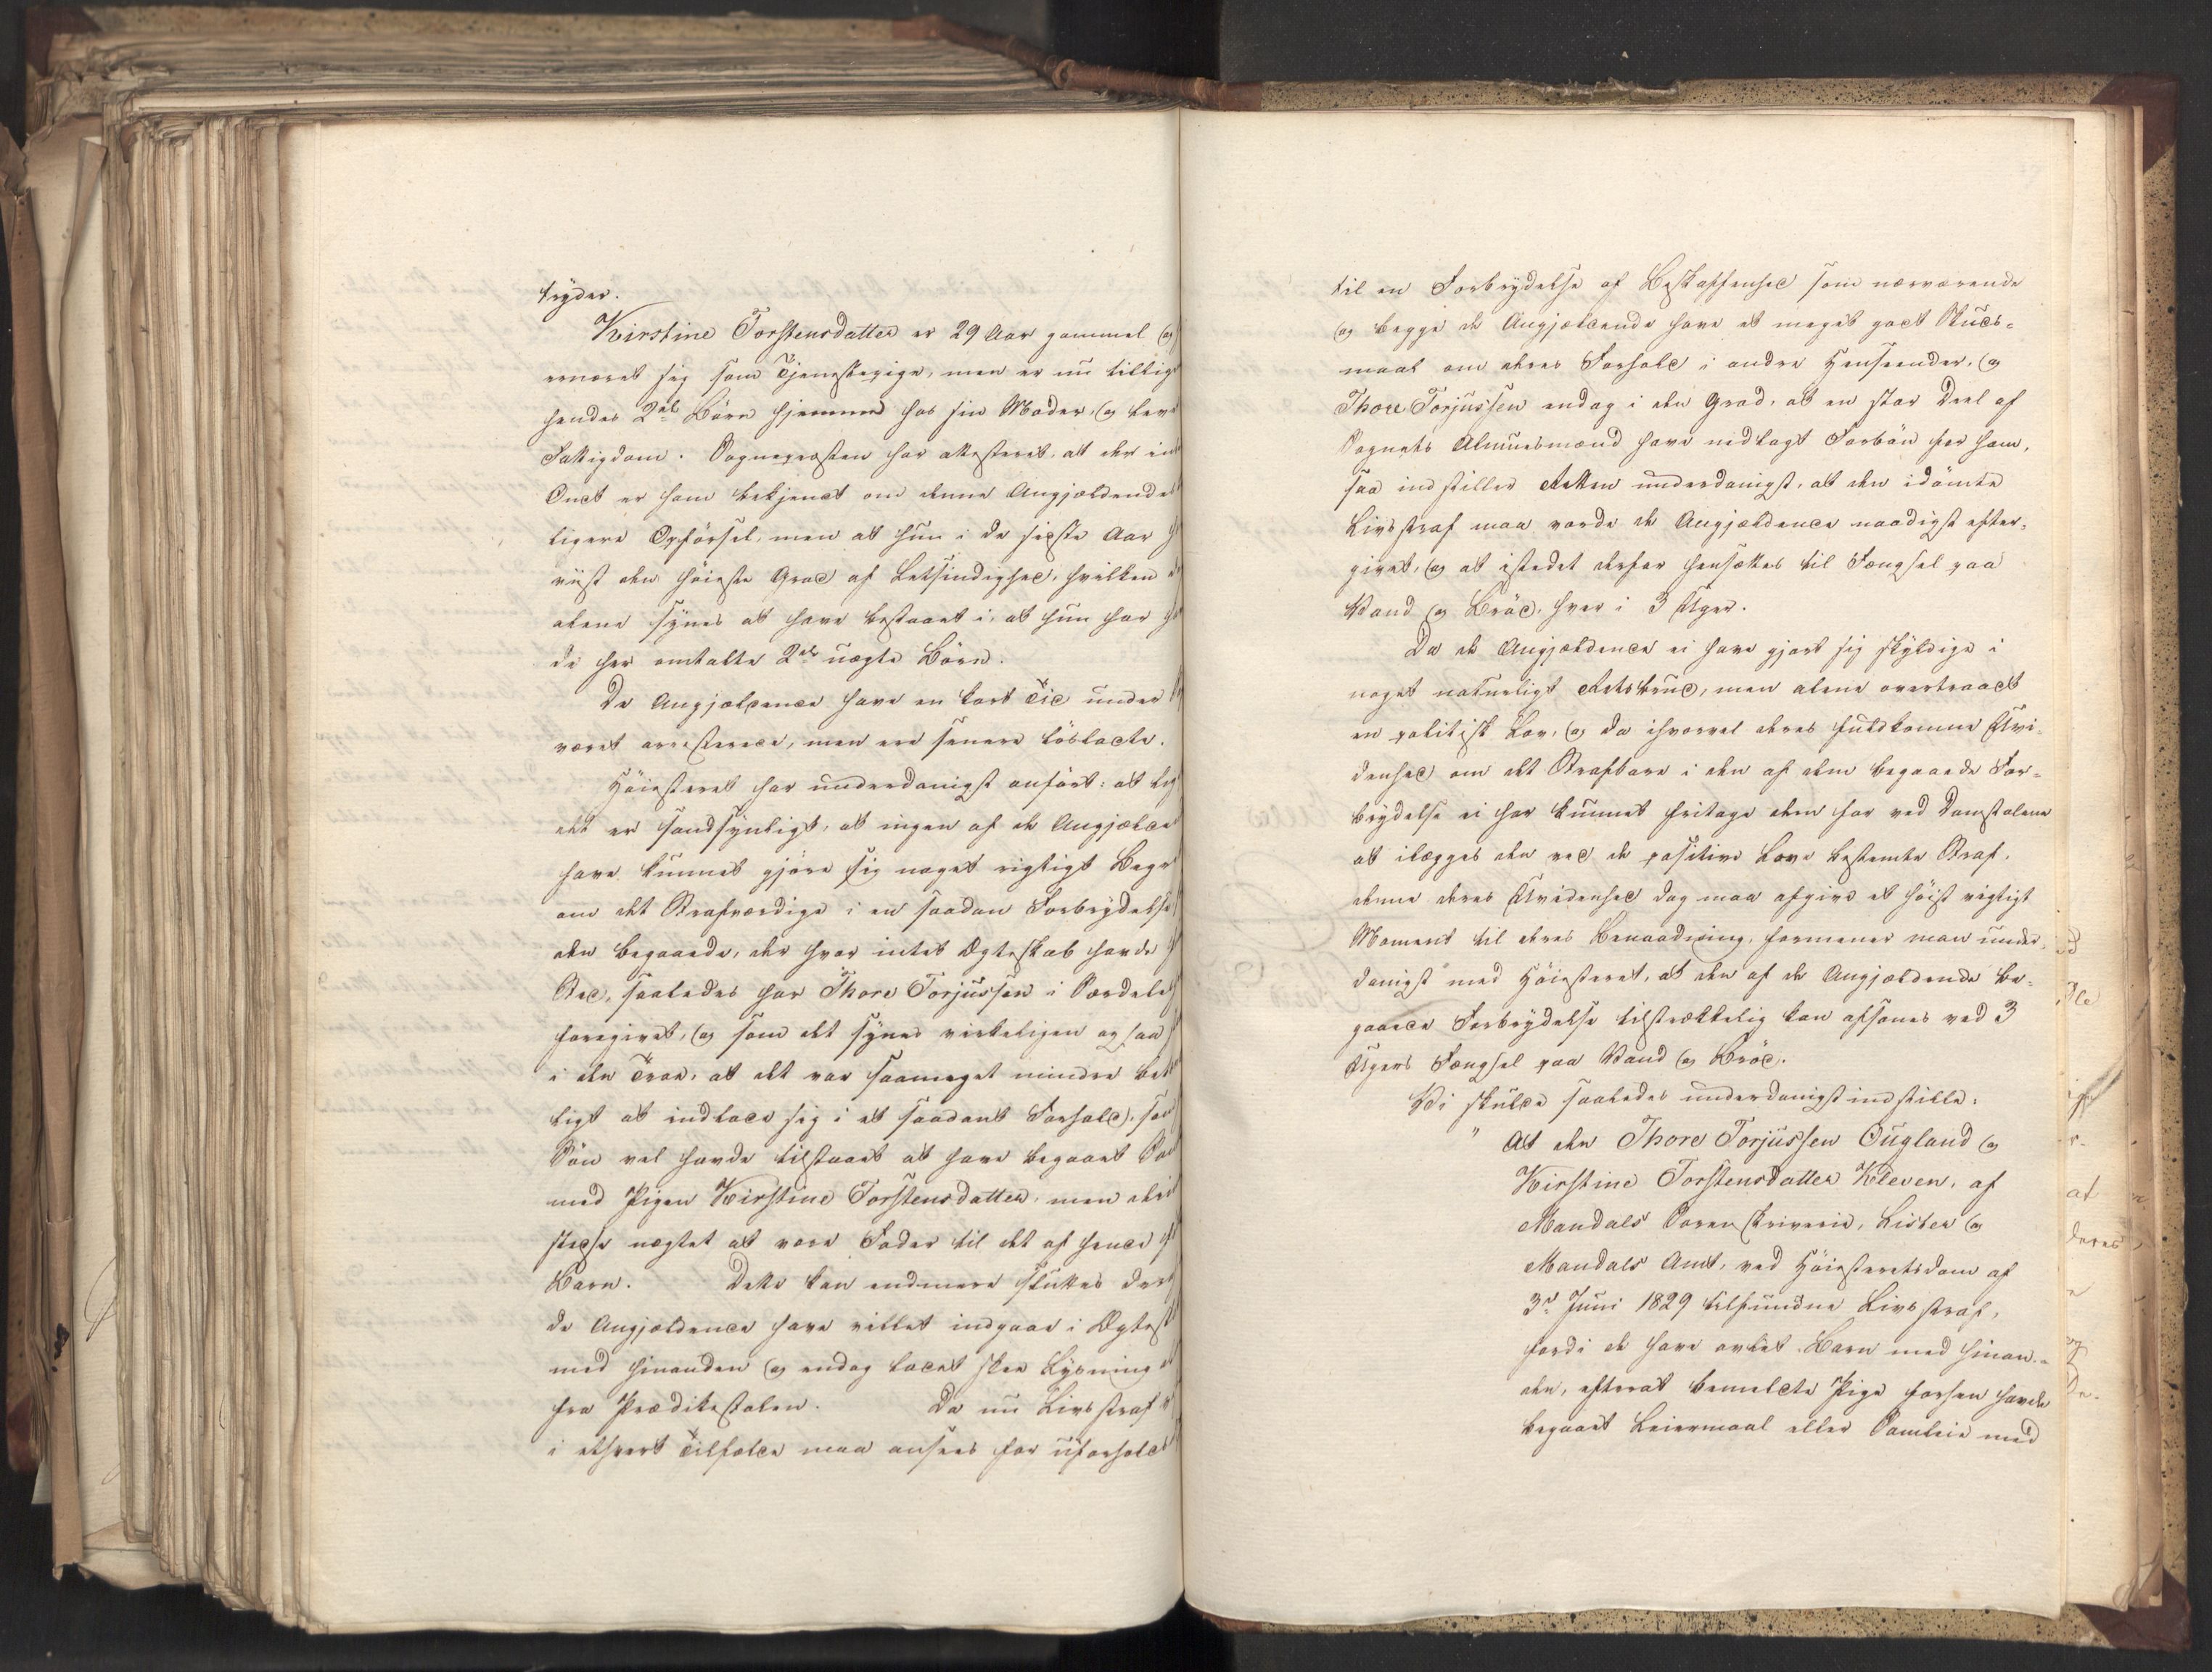 tyder.
Kirstine Torstensdatter er 29 Aar gammel og
ernæret sig som Tjenestepige, men er nu tillig
hendes 2de Börn hjemme hos sin Moder, og leve
Fattigdom. Sognepræsten har attesteret, at der int
Ondt er ham bekjendt om denne Angjældendes
ligere Opförsel, men at hun i de sidste Aar h
viist den höieste Grad af Letsindighed, hvilken d
alene synes at have bestaaet i, at hun har
de her omtalte 2de uægte Börn.
De Angjældende have en kort Tid under
været arresterede, men ere senere lösladte.
Höiesteret har underdanigst anfört: at lig
det er sandsynligt, at ingen af de Angjælde
have kunnet gjöre sig noget rigtigt Begre
om det Strafværdige i en saadan Forbrydelse
den begaaede, der hvor intet Ægteskab havde
Sted, saaledes har Thore Torjussen i Særdeles
foregivet, og som det synes virkeligen og saa
i den Troe, at det var saameget mindre bet
ligt at indlade sig i et saadant Forhold, som
Sön vel havde tilstaaet at have begaaet
med Pigen Kirstine Torstensdatter, men
stedse nægtet at være Fader til det af hende
Barn. Dette kan endmere sluttes deraf
de Angjældende have villet indgaae i Ægtesk
med hinanden og endog ladet skee Lysning
fra Prædikestolen. Da nu Livsstraf
i ethvert Tilfælde maa ansees for uforholds
til en Forbrydelse af Beskaffenhed som nærværende
og begge de Angjældende have et meget godt Skuds-
maal om deres Forhold i andre Henseender, og
Thore Torjussen endog i den Grad, at en stor Deel af
Sognets Almuesmænd have nedlagt Forbön for ham,
saa indstiller Retten underdanigst, at den idömte
Livsstraf maa vorde de Angjældende naadigst efter-
givet, og at istedet derfor hensættes til Fængsel paa
Vand og Bröd, hver i 3 Uger.
Da de Angjældende ei have gjort sig skyldige i
noget naturligt Retsbrud, men alene overtraadt
en politisk Lov, og da ihvorvel deres fuldkomne Uvi-
denhed om det Strafbare i den af dem begaaede For-
brydelse ei har kunnet fritage dem for ved Domstolene
at ilægges den ved de positive Love bestemte Straf,
denne deres Uvidenhed dog maa afgive et höist vigtigt
Moment til deres Benaadning, formener man under-
danigst med Höiesteret, at den af de Angjældende be-
gaaede Forbrydelse tilstrækkelig kan afsones ved 3
Ugers Fængsel paa Vand og Bröd.
Vi skulde saaledes underdanigst indstille:
" At den Thore Torjussen Ougland og
Kirstine Torstensdatter Kleven, af
Mandals Sorenskriverie, Lister og
Mandals Amt, ved Höiesteretsdom af
3d Juni 1829 tilfundne Livsstraf,
fordi de have avlet Barn med hinan-
den, efterat bemeldte Pige forhen havde
begaaet Leiermaal eller Samleie med